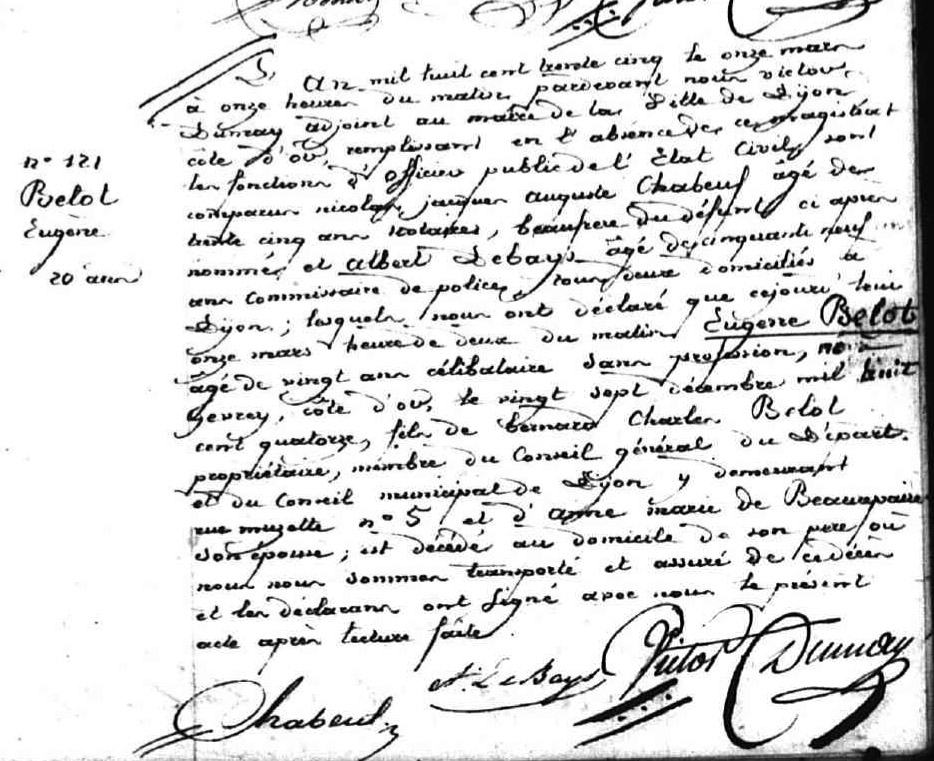 L'An mil huit cent trente cinq le onze mars
à onze heures du matin pardevant nous victor
Dumay adjoint au maire de la Ville de Dijon
côte d'or, remplissant en l'absence de ce magistrat
les fonctions d'officier public de l'Etat Civil, sont
comparus nicolas jacques auguste Chabeuf âgé de
trente cinq ans notaire, beaufrere du défunt ci après
nommé, et albert Lebays âgé de cinquante neuf
ans Commissaire de police, tous deux domiciliés à
Dijon ; lesquels nous ont déclaré que cejourd'hui
onze mars heure de deux du matin Eugène Belot
âgé de vingt ans célibataire sans profession, né à
Gevrey, côte d'or, le vingt sept décembre mil huit
cent quatorze, fils de bernard Charles Belot
propriétaire, membre du Conseil général du Départ.
et du Conseil municipal de Dijon y demeurant
rue muzette n° 5 et d'anne marie de Beaurepaire
son épouse ; est décédé au domicile de son pere où
nous nous sommes transporté et assuré de ce décès
et les déclarans ont signé avec nous le présent
acte après lecture faite
n° 121
Belot
Eugène
20 ans
Chabeuf
A. Le Bays
Victor Dumay